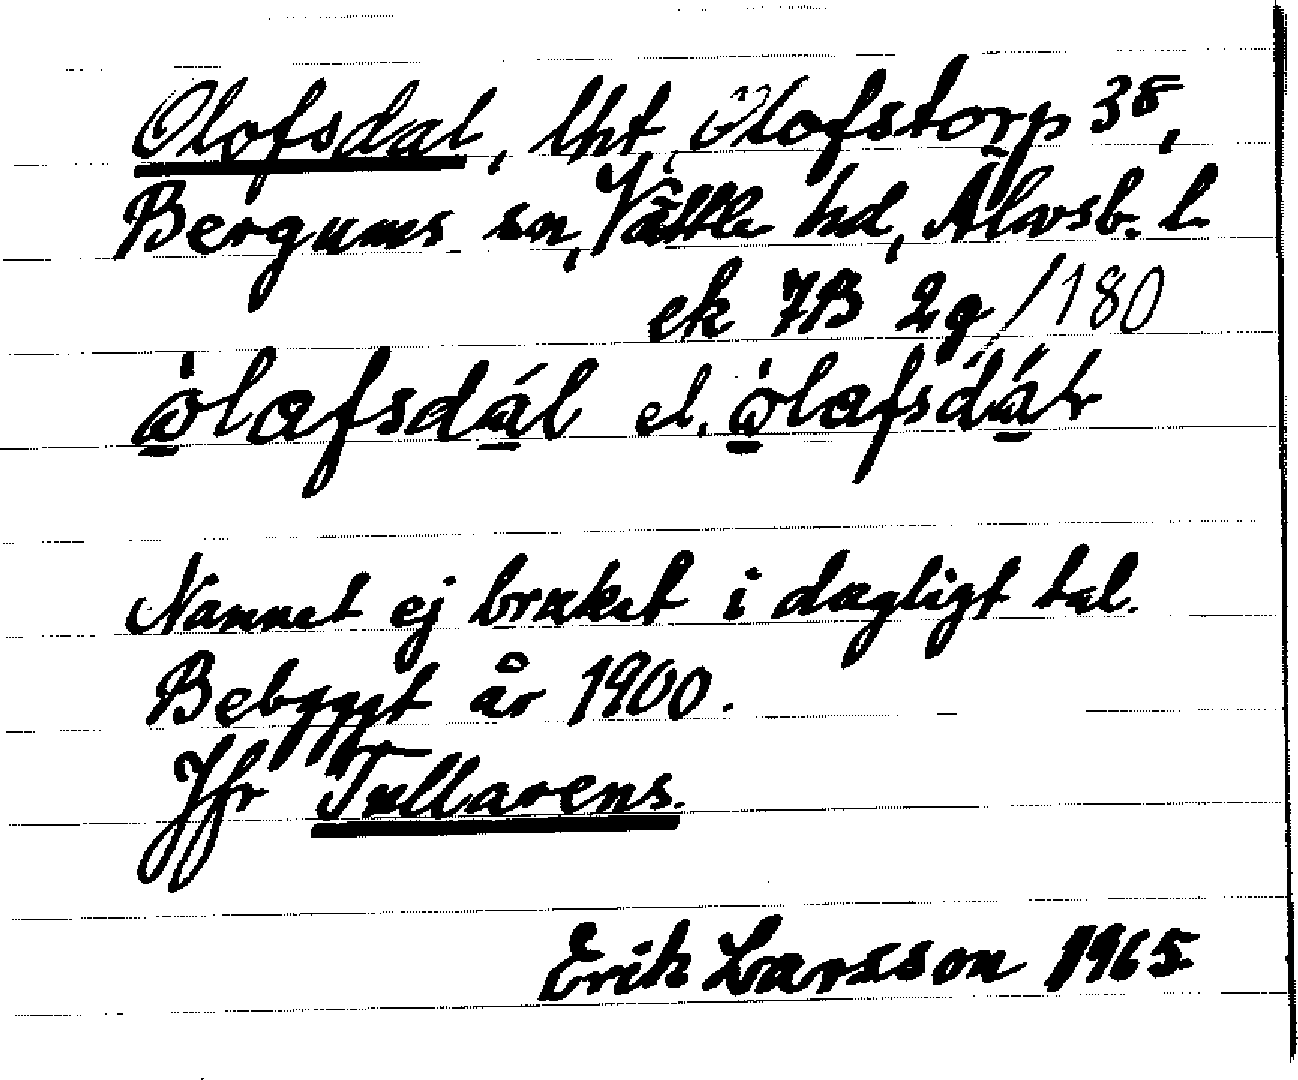 Olofsdal, lht, Olofstorp 3⁸,
Bergums sn, Vättle hd, Älvsb. l.
ek 7B 2g/180
ò̱lafsdá̱l el. ò̱lafsdá̱ɫ
Namnet ej brukat i dagligt tal.
Bebyggt år 1900.
Jfr Tullarens.
Erik Larsson 1965.